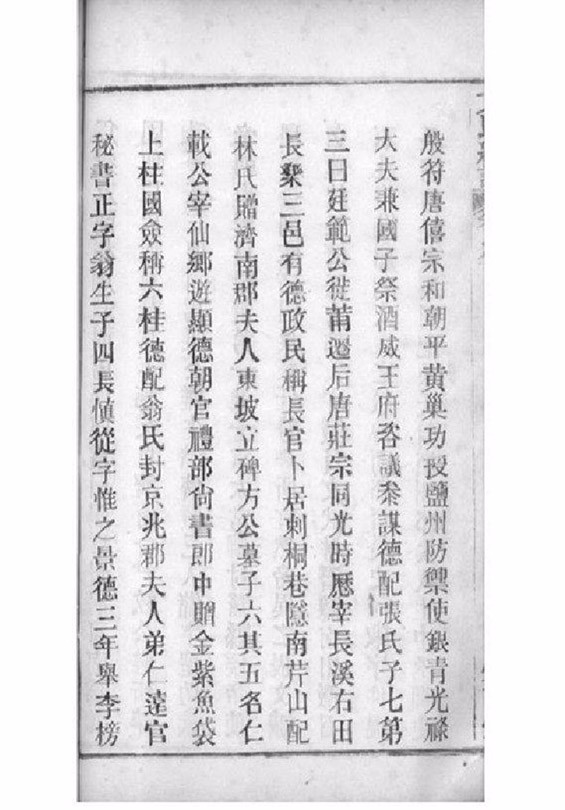 般符唐僖宗和朝平黄巢功授鹽州防禦使銀青光祿
大夫兼國子祭酒威王府咨議叅謀德配張氏子七第
三曰廷範公從莆遷后唐莊宗同光時歷宰長溪右田
長樂三邑有德政民稱長官卜居刺桐巷隱南芹山配
林氏贈濟南郡夫人東坡立碑方公墓子六其五名仁
載公宰仙鄉遊顯德朝官禮部尙書郎中贈金紫魚袋
上柱國僉稱六桂德配翁氏封京兆郡夫人弟仁遠官
秘書正字翁生子四長慎從字惟之景德三年舉李榜